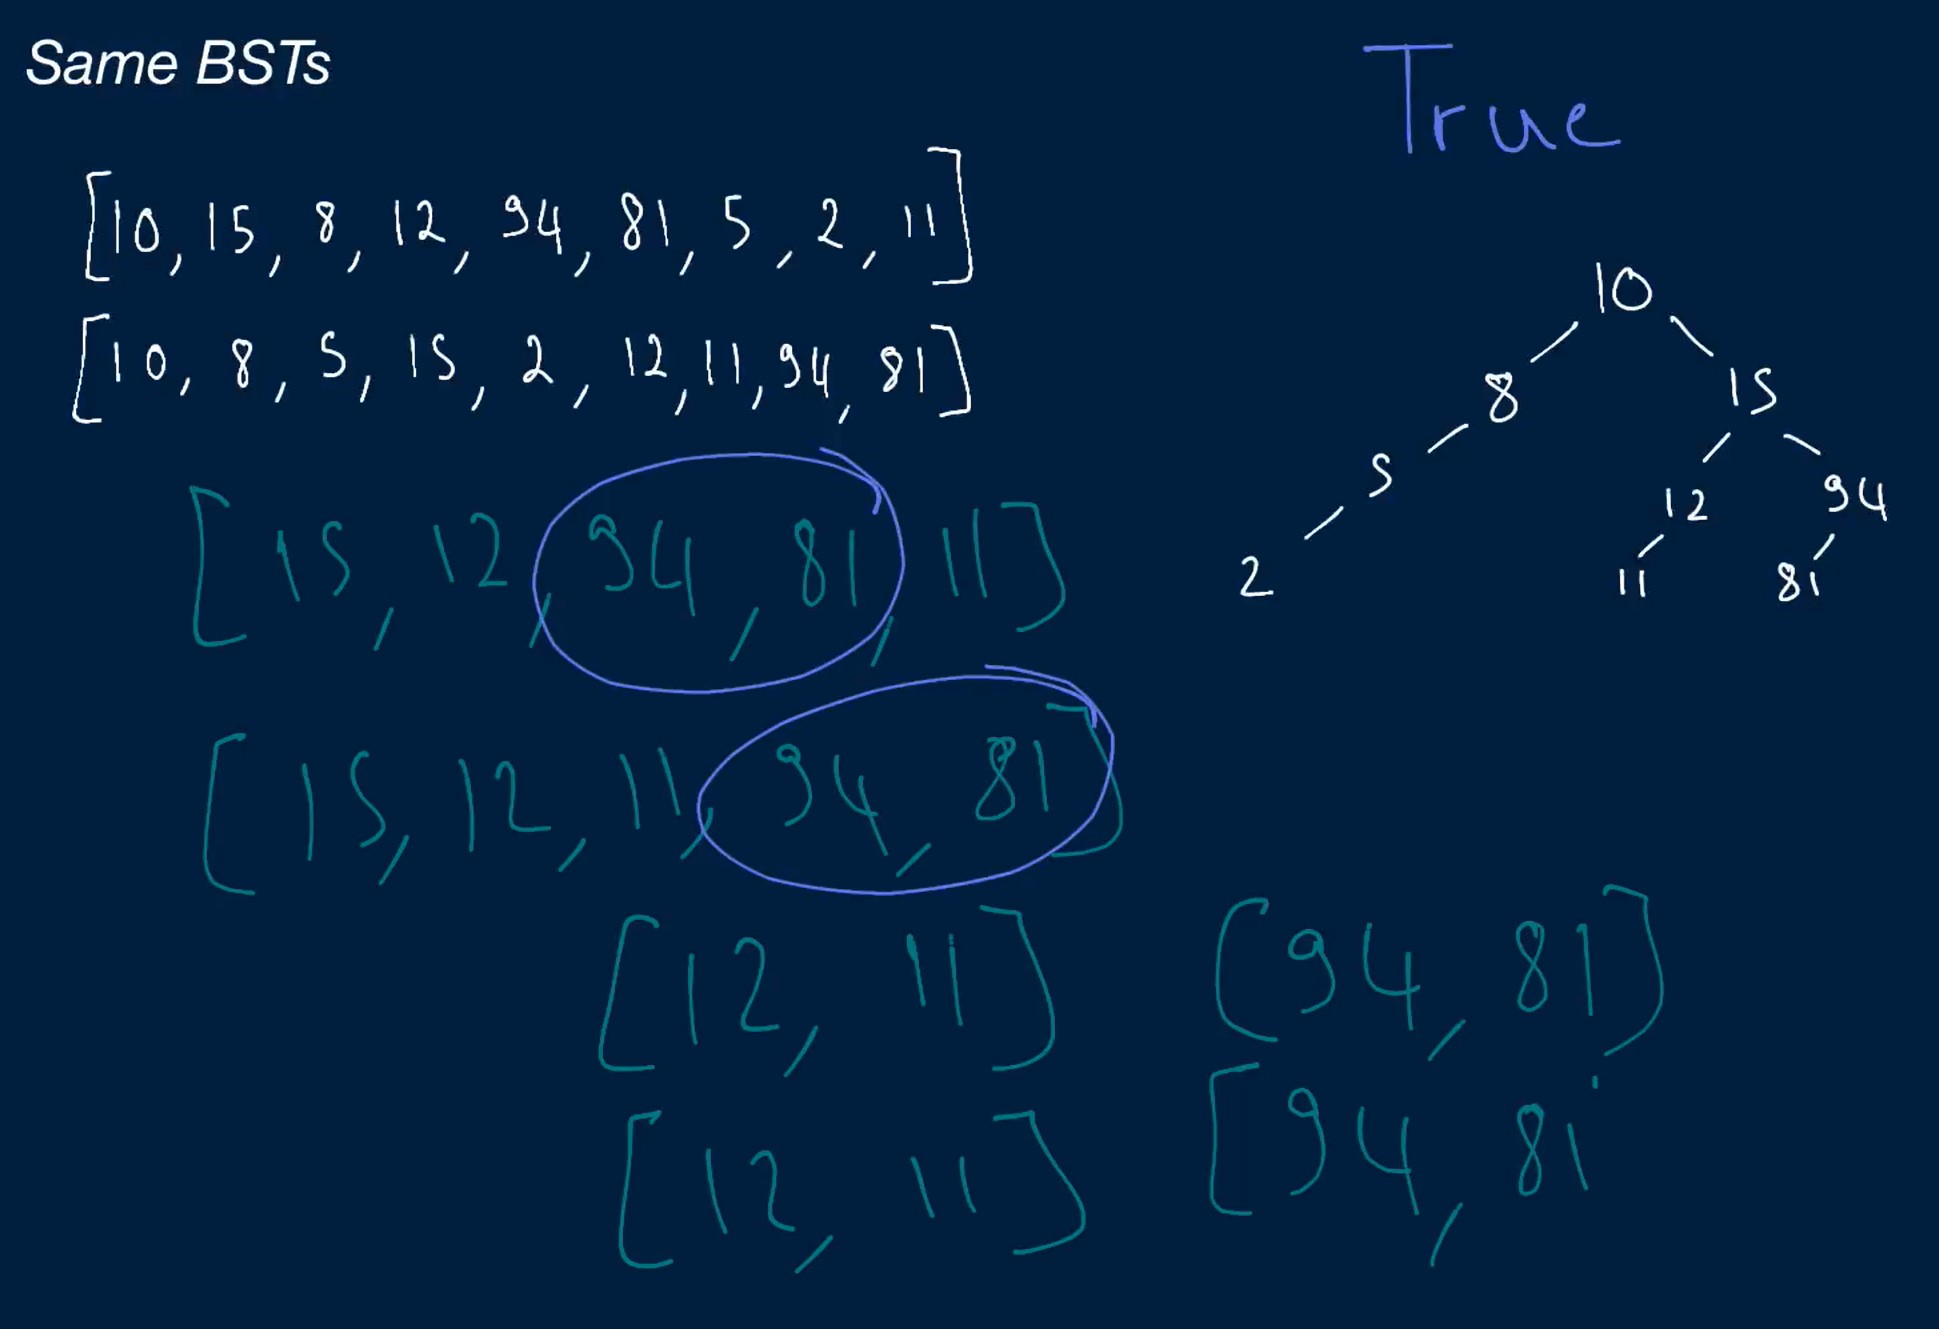 Same BSTs
True
[10, 15, 8, 12, 94, 81, 5, 2, 11]
[10, 8, 5, 15, 2, 12, 11, 94, 81]
10
8 15
5 12 94
2 11 81
[15, 12, 94, 81, 11]
[15, 12, 11, 94, 81]
[12, 11] [94, 81]
[12, 11] [94, 81